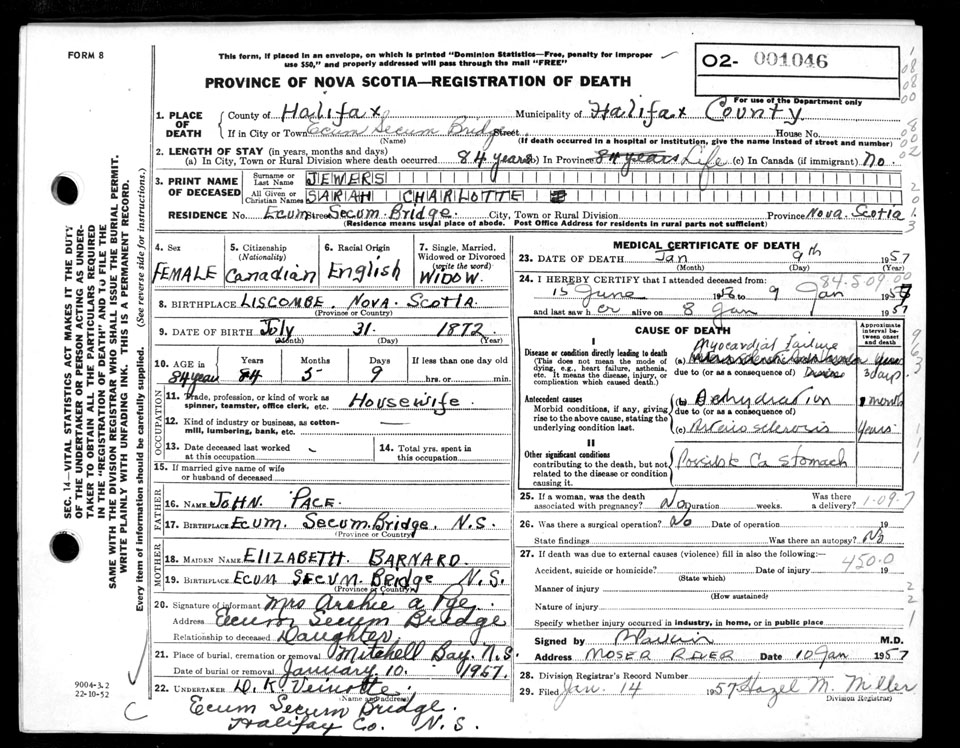 FORM 8
This form, if placed in an envelope, on which is printed "Dominion Statistics—Free, penalty for improper
use $50," and properly addressed will pass through the mail "FREE"
O2- 001046
PROVINCE OF NOVA SCOTIA—REGISTRATION OF DEATH
For use of the Department only
1. PLACE OF DEATH
County of Halifax Municipality of Halifax County
If in City or Town Ecum Secum Bridge Street House No.
(Name) (If death occurred in a hospital or institution, give the name instead of street and number)
2. LENGTH OF STAY (in years, months and days)
(a) In City, Town or Rural Division where death occurred 84 years (b) In Province 84 years Life (c) In Canada (if immigrant) No.
3. PRINT NAME OF DECEASED
Surname or Last Name JEWERS
All Given or Christian Names SARAH CHARLOTTE
RESIDENCE No. Ecum Street Secum Bridge. City, Town or Rural Division Province Nova Scotia
(Residence means usual place of abode. Post Office Address for residents in rural parts not sufficient)
4. Sex FEMALE
5. Citizenship (Nationality) Canadian
6. Racial Origin English
7. Single, Married, Widowed or Divorced (write the word) WIDOW.
8. BIRTHPLACE LISCOMBE. NOVA. SCOTIA.
(Province or Country)
9. DATE OF BIRTH July 31. 1872
(Month) (Day) (Year)
10. AGE in Years Months Days If less than one day old
84 year 84 5 9 hrs. or min.
OCCUPATION
11. Trade, profession, or kind of work as spinner, teamster, office clerk, etc. Housewife.
12. Kind of industry or business, as cotton-mill, lumbering, bank, etc. —
13. Date deceased last worked at this occupation
14. Total yrs. spent in this occupation
15. If married give name of wife or husband of deceased
FATHER
16. NAME JOHN PACE.
17. BIRTHPLACE Ecum. Secum. Bridge. N.S.
(Province or Country)
MOTHER
18. MAIDEN NAME ELIZABETH. BARNARD.
19. BIRTHPLACE ECUM SECUM. Bridge N.S.
(Province or Country)
20. Signature of informant Mrs Archie a Pye.
Address Ecum Secum Bridge
Relationship to deceased Daughter.
21. Place of burial, cremation or removal Mitchell Bay. N.S.
Date of burial or removal January. 10. 1957.
22. UNDERTAKER D. K. Veinotte.
(Name and address)
Ecum Secum Bridge.
Halifax Co. N.S.
MEDICAL CERTIFICATE OF DEATH
23. DATE OF DEATH Jan 9th 1957
(Month) (Day) (Year)
84.5.09.00
24. I HEREBY CERTIFY that I attended deceased from:
15 June 1956 to 9 Jan 1957
and last saw her alive on 8 Jan 1957
CAUSE OF DEATH
Approximate interval between onset and death
I
Disease or condition directly leading to death
(This does not mean the mode of dying, e.g., heart failure, asthenia, etc. It means the disease, injury, or complication which caused death.)
Myocardial failure
(a) Disease Years
due to (or as a consequence of) 3 days.
Antecedent causes
Morbid conditions, if any, giving rise to the above cause, stating the underlying condition last.
(b) Dehydration months
due to (or as a consequence of)
(c) Arterio sclerosis Years
II
Other significant conditions
contributing to the death, but not related to the disease or condition causing it.
Possible Ca Stomach
25. If a woman, was the death associated with pregnancy? No Duration weeks. Was there a delivery? 1-09.7
26. Was there a surgical operation? No Date of operation 19
State findings Was there an autopsy? No
27. If death was due to external causes (violence) fill in also the following:—
450.0
Accident, suicide or homicide? Date of injury 19
(State which)
Manner of injury
(How sustained)
Nature of injury
Specify whether injury occurred in industry, in home, or in public place
Signed by M.D.
Address MOSER RIVER Date 10 Jan 1957
28. Division Registrar's Record Number
29. Filed Jan. 14 1957 Hazel M. Miller
Division Registrar
9004-3.2
22-10-52
SEC. 14—VITAL STATISTICS ACT MAKES IT THE DUTY
OF THE UNDERTAKER OR PERSON ACTING AS UNDER-
TAKER TO OBTAIN ALL THE PARTICULARS REQUIRED
IN THE "REGISTRATION OF DEATH" AND TO FILE THE
SAME WITH THE DIVISION REGISTRAR WHO SHALL ISSUE THE BURIAL PERMIT.
WRITE PLAINLY WITH UNFADING INK. THIS IS A PERMANENT RECORD.
Every item of information should be carefully supplied. (See reverse side for instructions.)